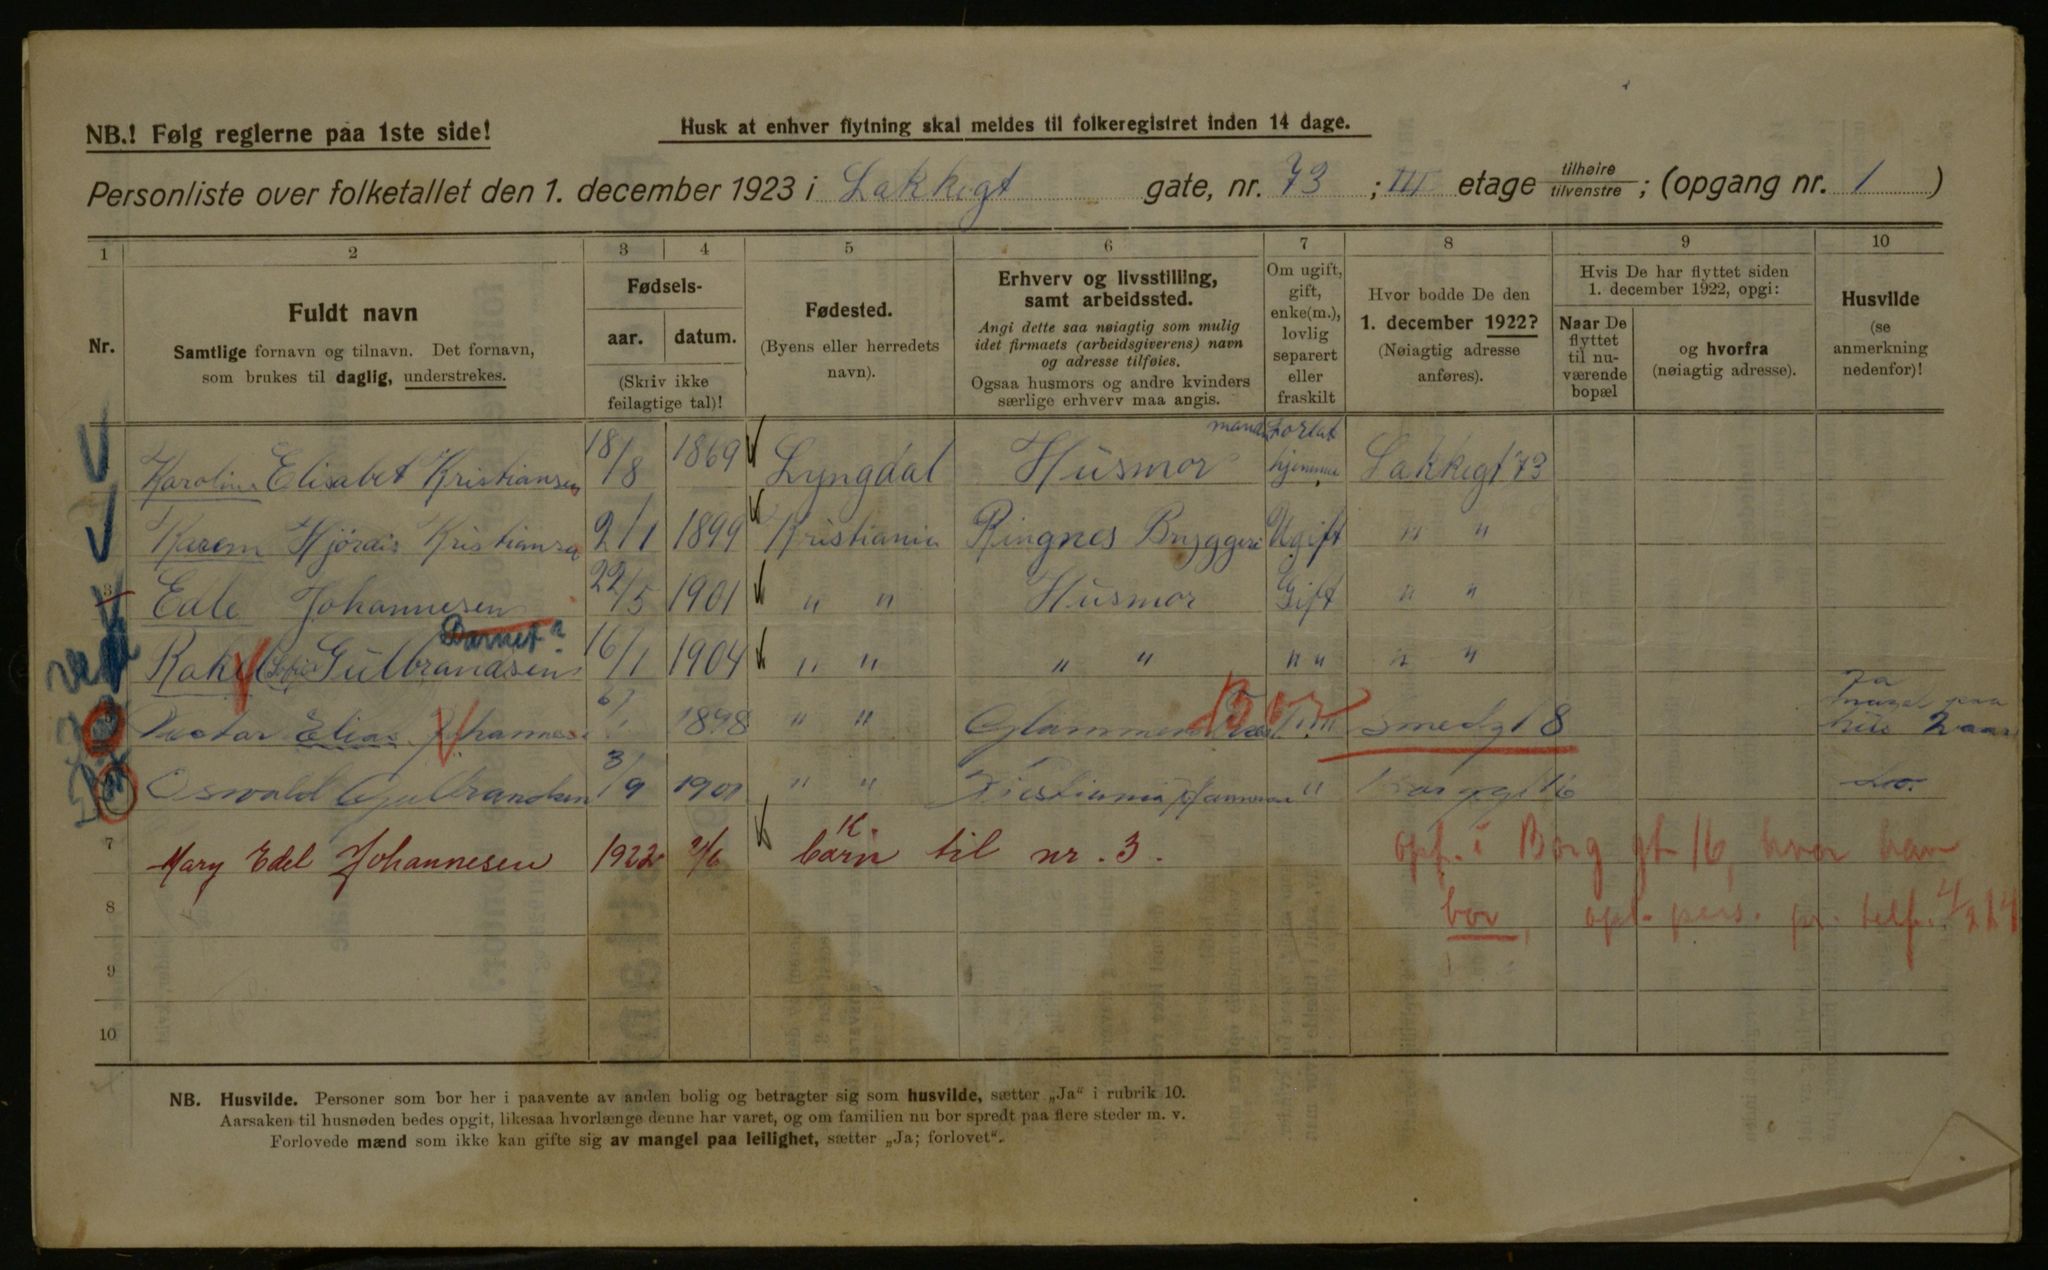 NB.! Følg reglerne paa 1ste side!
Husk at enhver flytning skal meldes til folkeregistret inden 14 dage.
Personliste over folketallet den 1. december 1923 i Lakkegt gate, nr. 73 ; III etage tilhøire/tilvenstre ; (opgang nr. 1 )
1 2 3 4 5 6 7 8 9 10
Nr.
Fuldt navn
Samtlige fornavn og tilnavn. Det fornavn,
som brukes til daglig, understrekes.
Fødsels-
aar. datum.
(Skriv ikke
feilagtige tal)!
Fødested.
(Byens eller herredets
navn).
Erhverv og livsstilling,
samt arbeidssted.
Angi dette saa nøiagtig som mulig
idet firmaets (arbeidsgiverens) navn
og adresse tilføies.
Ogsaa husmors og andre kvinders
særlige erhverv maa angis.
Om ugift,
gift,
enke(m.),
lovlig
separert
eller
fraskilt
Hvor bodde De den
1. december 1922?
(Nøiagtig adresse
anføres).
Hvis De har flyttet siden
1. december 1922, opgi:
Naar De
flyttet
til nu-
værende
bopæl
og hvorfra
(nøiagtig adresse).
Husvilde
(se
anmerkning
nedenfor)!
Karoline Elisabet Kristiansen 18/8 1869 Lyngdal Husmor forlat hjemme Lakkegt 73
Karen Hjördis Kristiansen 2/1 1899 Kristiania Ringnes Bryggeri Ugift " "
3 Edle Johannesen 22/5 1901 " " Husmor Gift " "
Barnet?
Rakel Gulbrandsen 16/1 1904 " " " " " " " "
Elias 6/1 1898 " " Bor Smedgt 8 Ja 2 aar
Oswald Gulbrandsen 3/9 1901 " " Kristiania " Borggt 16 do.
7 Mary Edel Johannesen 1922 barn til nr. 3.
opf. i Borg gt 16, hvor han
8 bor, opl. pers. pr. telf.
9
10
NB. Husvilde. Personer som bor her i paavente av anden bolig og betragter sig som husvilde, sætter „Ja“ i rubrik 10.
Aarsaken til husnøden bedes opgit, likesaa hvorlænge denne har varet, og om familien nu bor spredt paa flere steder m. v.
Forlovede mænd som ikke kan gifte sig av mangel paa leilighet, sætter „Ja; forlovet“.